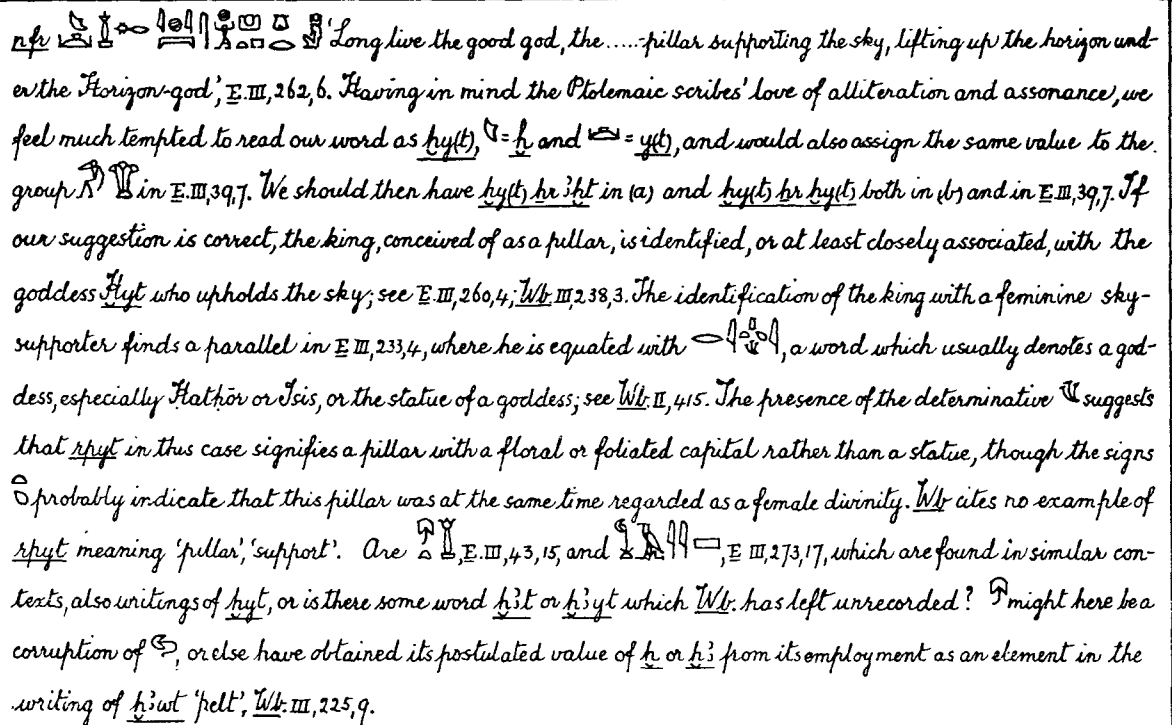 nfr 'Long live the good god, the.....-pillar supporting the sky, lifting up the horizon und-
er the Horizon-god', E.III,262,6. Having in mind the Ptolemaic scribes' love of alliteration and assonance, we
feel much tempted to read our word as ḫy(t), = ḫ and = y(t), and would also assign the same value to the
group in E.III,39,7. We should then have ḫy(t) ẖr ꜣḫt in (a) and ḫy(t) ẖr ḫy(t) both in (b) and in E.III,39,7. If
our suggestion is correct, the king, conceived of as a pillar, is identified, or at least closely associated, with the
goddess Ḫyt who upholds the sky; see E.III,260,4; Wb.III,238,3. The identification of the king with a feminine sky-
supporter finds a parallel in E III,233,4, where he is equated with , a word which usually denotes a god-
dess, especially Ḥatḥōr or Isis, or the statue of a goddess; see Wb.II,415. The presence of the determinative suggests
that rpyt in this case signifies a pillar with a floral or foliated capital rather than a statue, though the signs
probably indicate that this pillar was at the same time regarded as a female divinity. Wb cites no example of
rpyt meaning 'pillar', 'support'. Are , E.III,43,15, and , E III,273,17, which are found in similar con-
texts, also writings of ḫyt, or is there some word ḫꜣt or ḫꜣyt which Wb. has left unrecorded? might here be a
corruption of , or else have obtained its postulated value of ḫ or ḫꜣ from its employment as an element in the
writing of ḫꜣwt 'pelt', Wb.III,225,9.